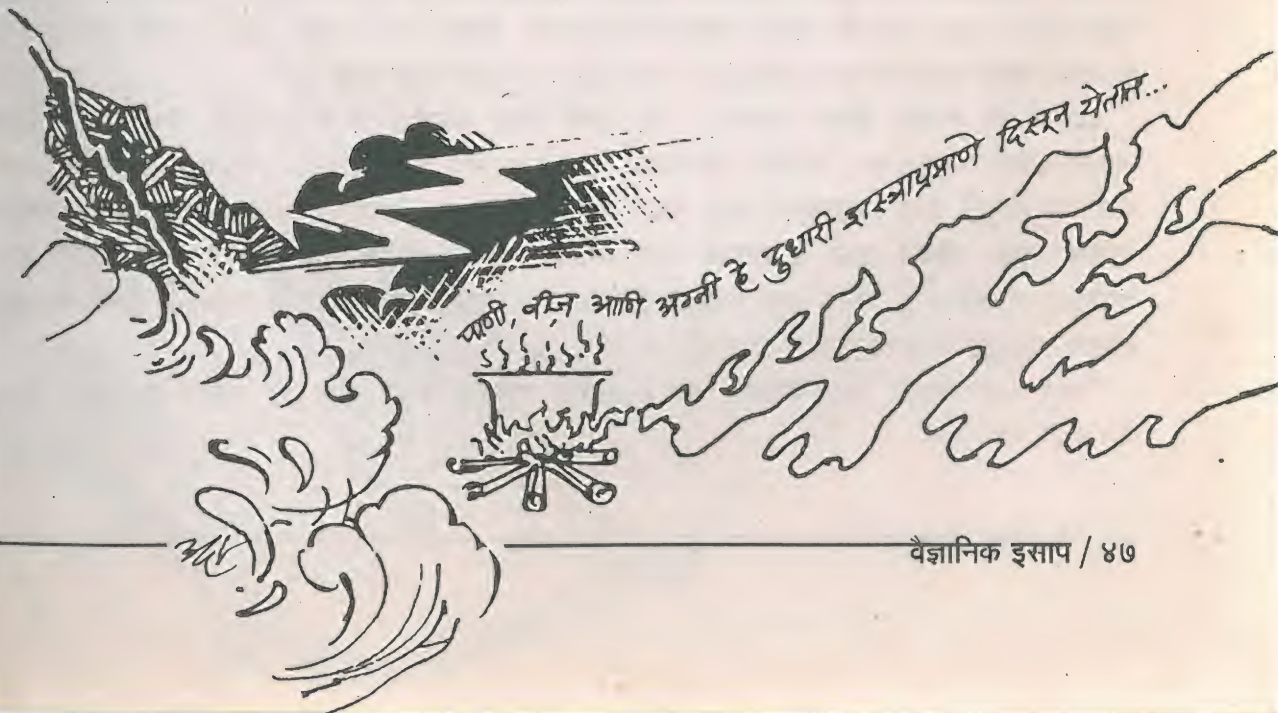 पाणी, वीज आणि अग्नी हे दुधारी शस्त्राप्रमाणे दिसून येतात...
वैज्ञानिक इसाप / ४७